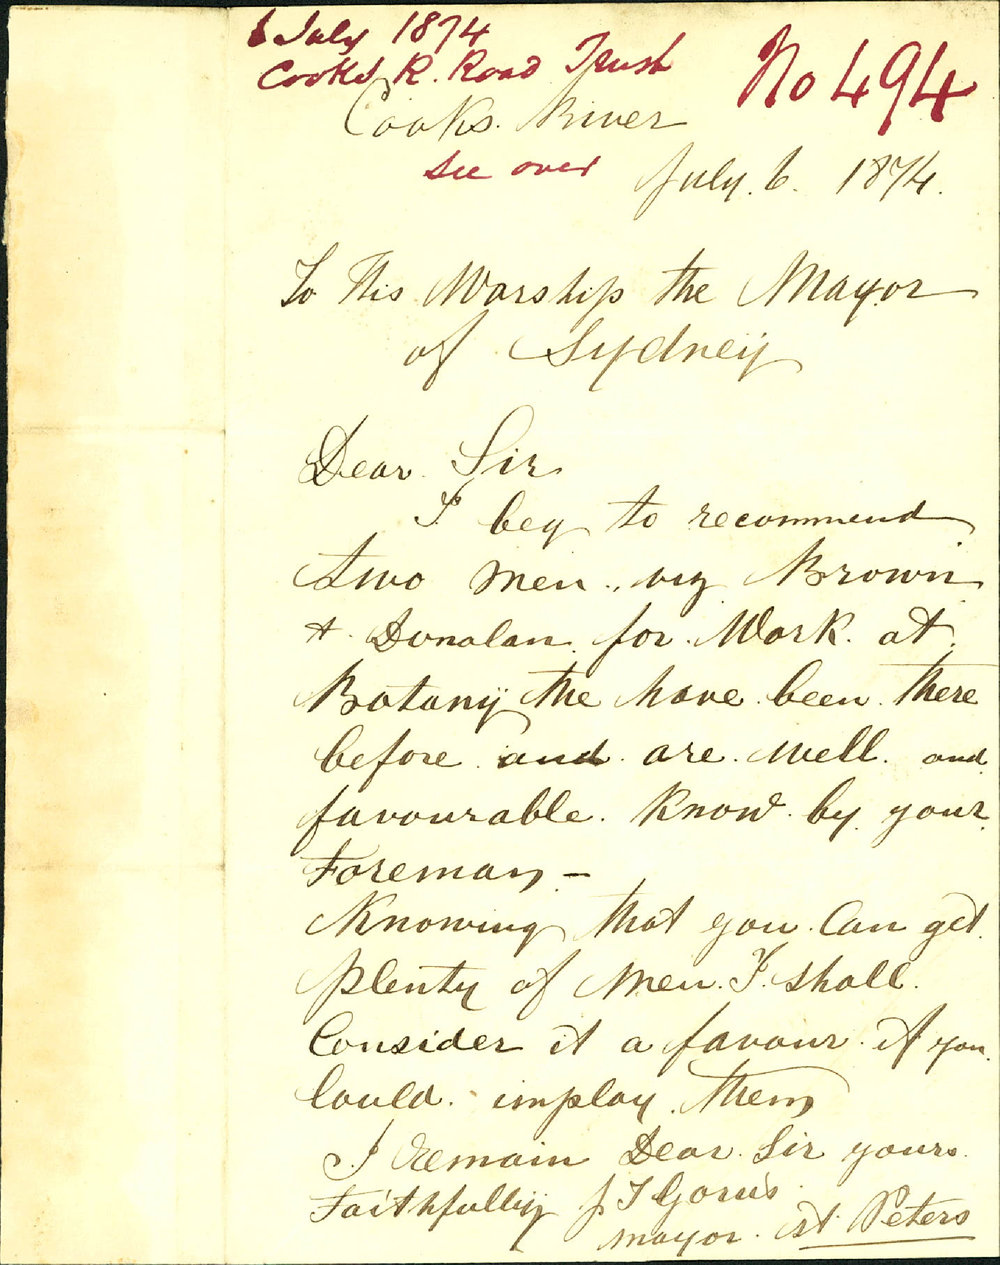 6 July 1874
Cooks R. Road Trust
No 494
Cooks River
see over
July 6. 1874.
To His Worship the Mayor
of Sydney
Dear Sir
I beg to recommend
two men, viz Brown
& Donolan for Work at
Botany the have been there
before and are well and
favourable Know by your
Foreman –
Knowing that you Can get
plenty of Men I shall
Consider it a favour if you
Could imploy them
I Remain Dear Sir yours
Faithfully J T
mayor St Peters